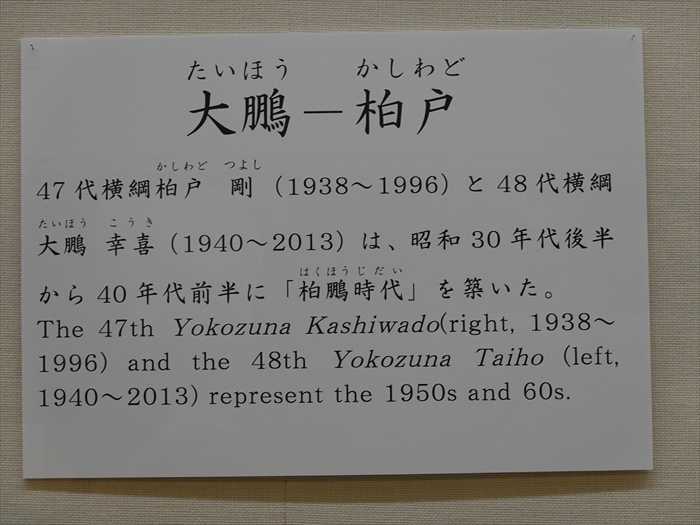 たいほう かしわど
大鵬－柏戸
かしわど つよし
47代横綱柏戸 剛（1938～1996）と48代横綱
たいほう こうき
大鵬 幸喜（1940～2013）は、昭和30年代後半
はくほうじだい
から40年代前半に「柏鵬時代」を築いた。
The 47th Yokozuna Kashiwado(right, 1938～
1996) and the 48th Yokozuna Taiho (left,
1940～2013) represent the 1950s and 60s.